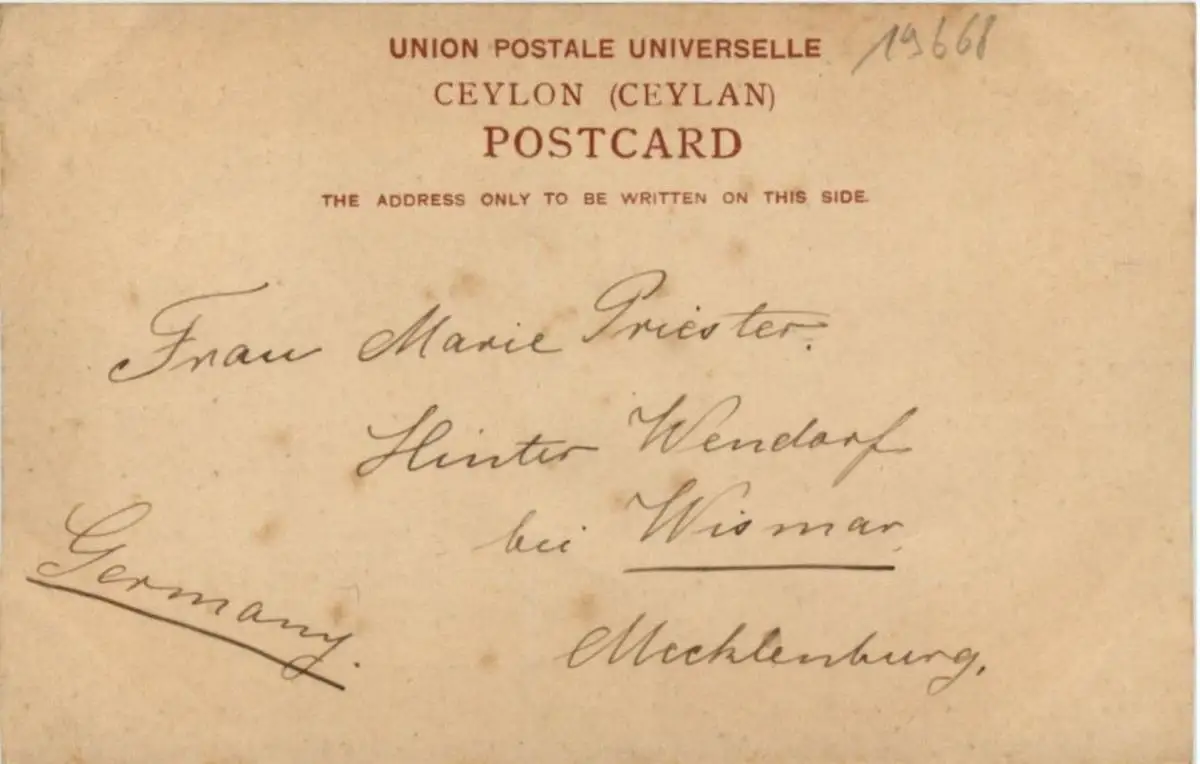 19668
UNION POSTALE UNIVERSELLE
CEYLON (CEYLAN)
POSTCARD
THE ADDRESS ONLY TO BE WRITTEN ON THIS SIDE.
Frau Marie Priester.
Hinter Wendorf
bei Wismar.
Germany.
Mecklenburg.